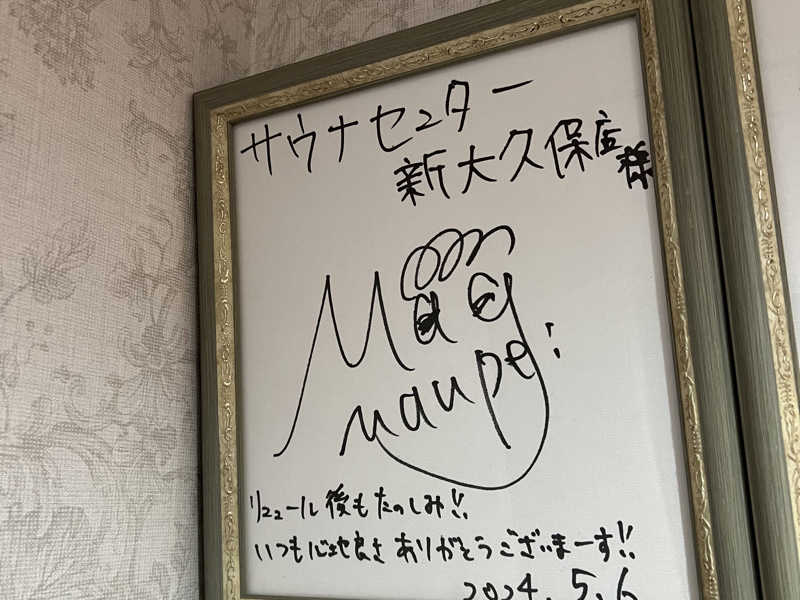 サウナセンター
新大久保店様
Mag
naupe:
リニューアル後もたのしみ!!
いつも心地良さありがとうございまーす!!
2024.5.6